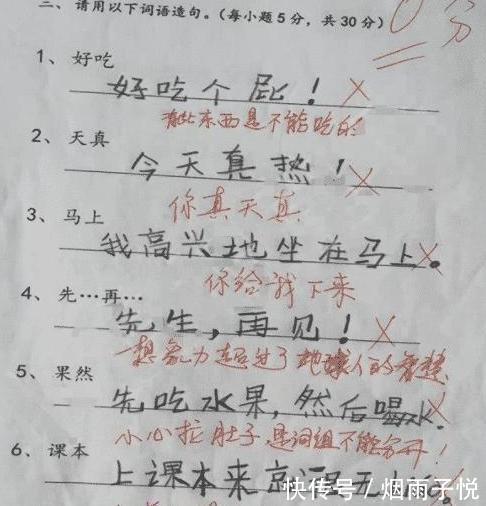 二、请用以下词语造句。(每小题5分,共30分)
0分
1、好吃
好吃个屁!
有些东西是不能吃的
2、天真
今天真热!
你真天真
3、马上
我高兴地坐在马上。
你给我下来
4、先…再…
先生,再见!
想象力超过了地球人的智慧
5、果然
先吃水果,然后喝水.
小心拉肚子 是词组不能分开!
6、课本
上课本来
快传号/烟雨子悦